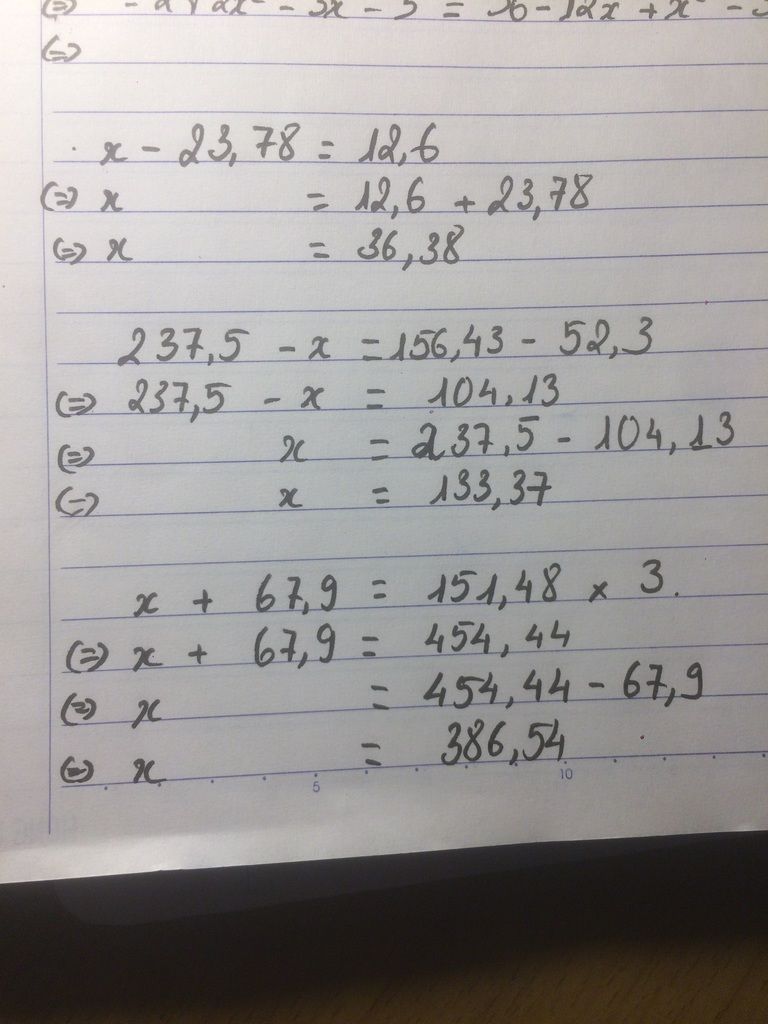 (=)
. x - 23,78 = 12,6
(=) x = 12,6 + 23,78
(=) x = 36,38
237,5 - x = 156,43 - 52,3
(=) 237,5 - x = 104,13
(=) x = 237,5 - 104,13
(=) x = 133,37
x + 67,9 = 151,48 x 3.
(=) x + 67,9 = 454,44
(=) x = 454,44 - 67,9
(=) x = 386,54
5 10